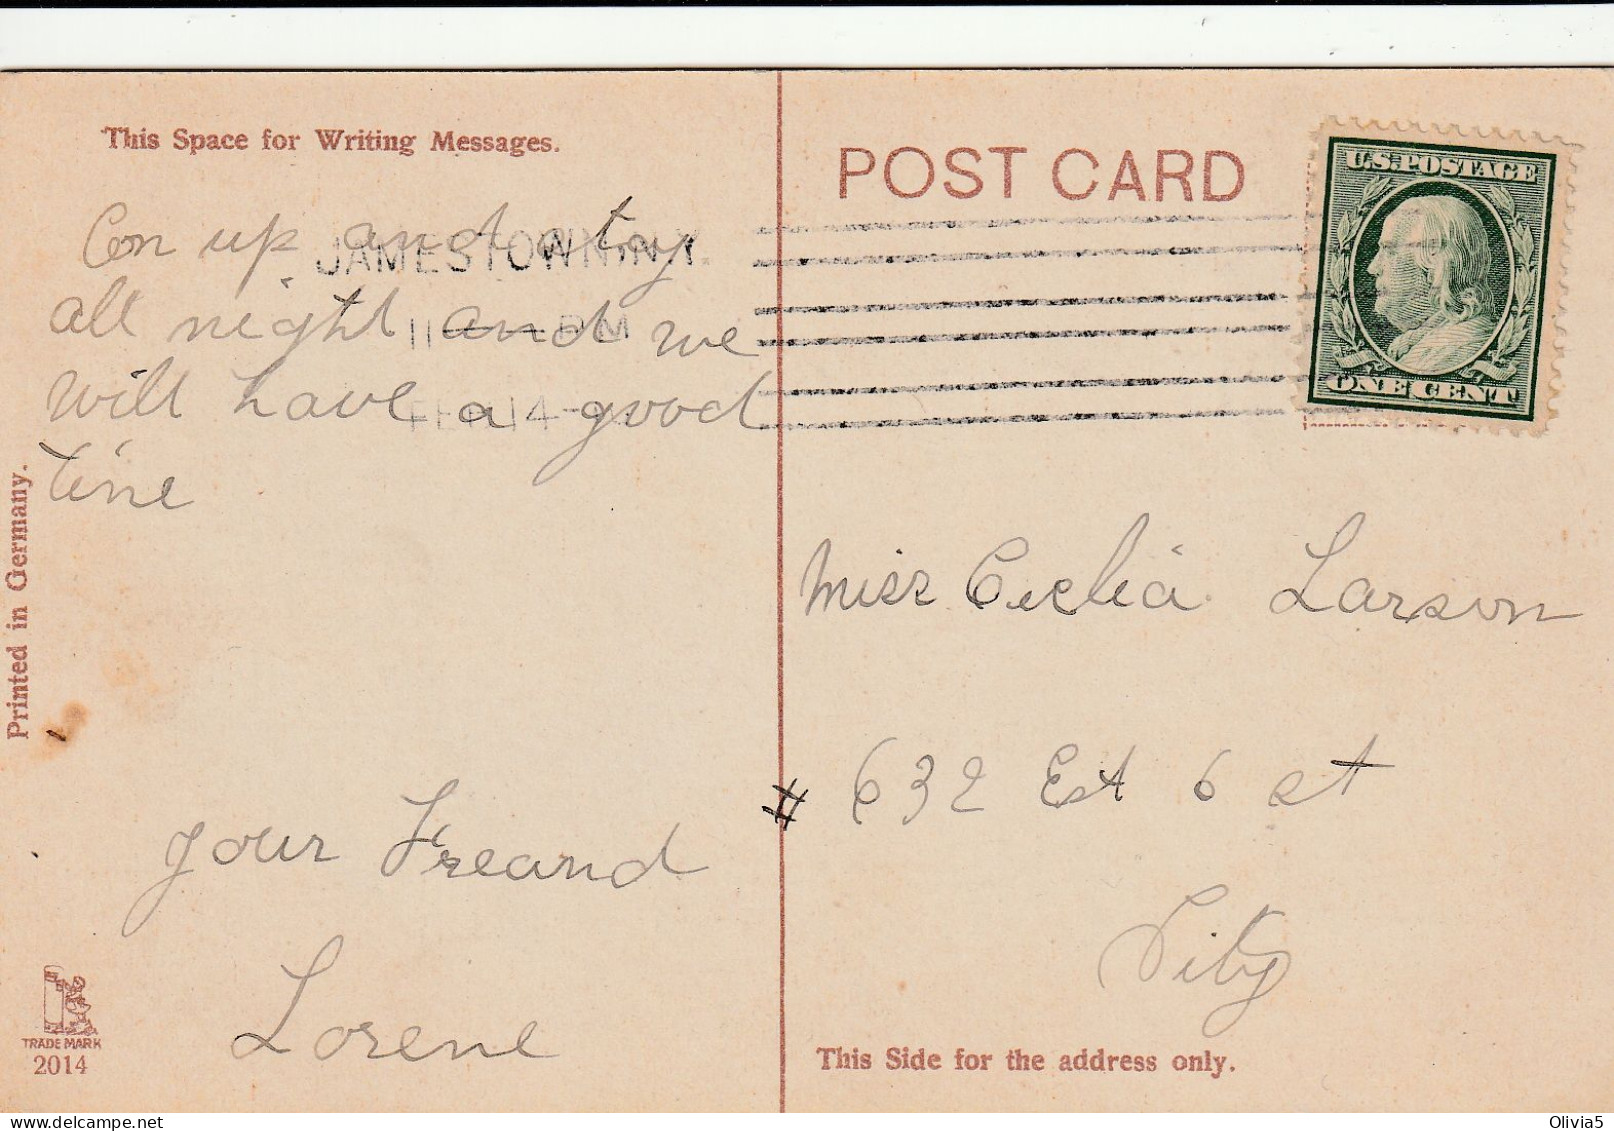 This Space for Writing Messages.
Con up and stay
all night and we
will have a good
tine
your Freand
Lorene
Printed in Germany.
TRADE MARK
2014
JAMESTOWN, N.Y.
11 PM
14
POST CARD
U.S. POSTAGE
ONE CENT
Miss Ceclia Larson
# 632 Est 6 st
City
This Side for the address only.
Olivia5